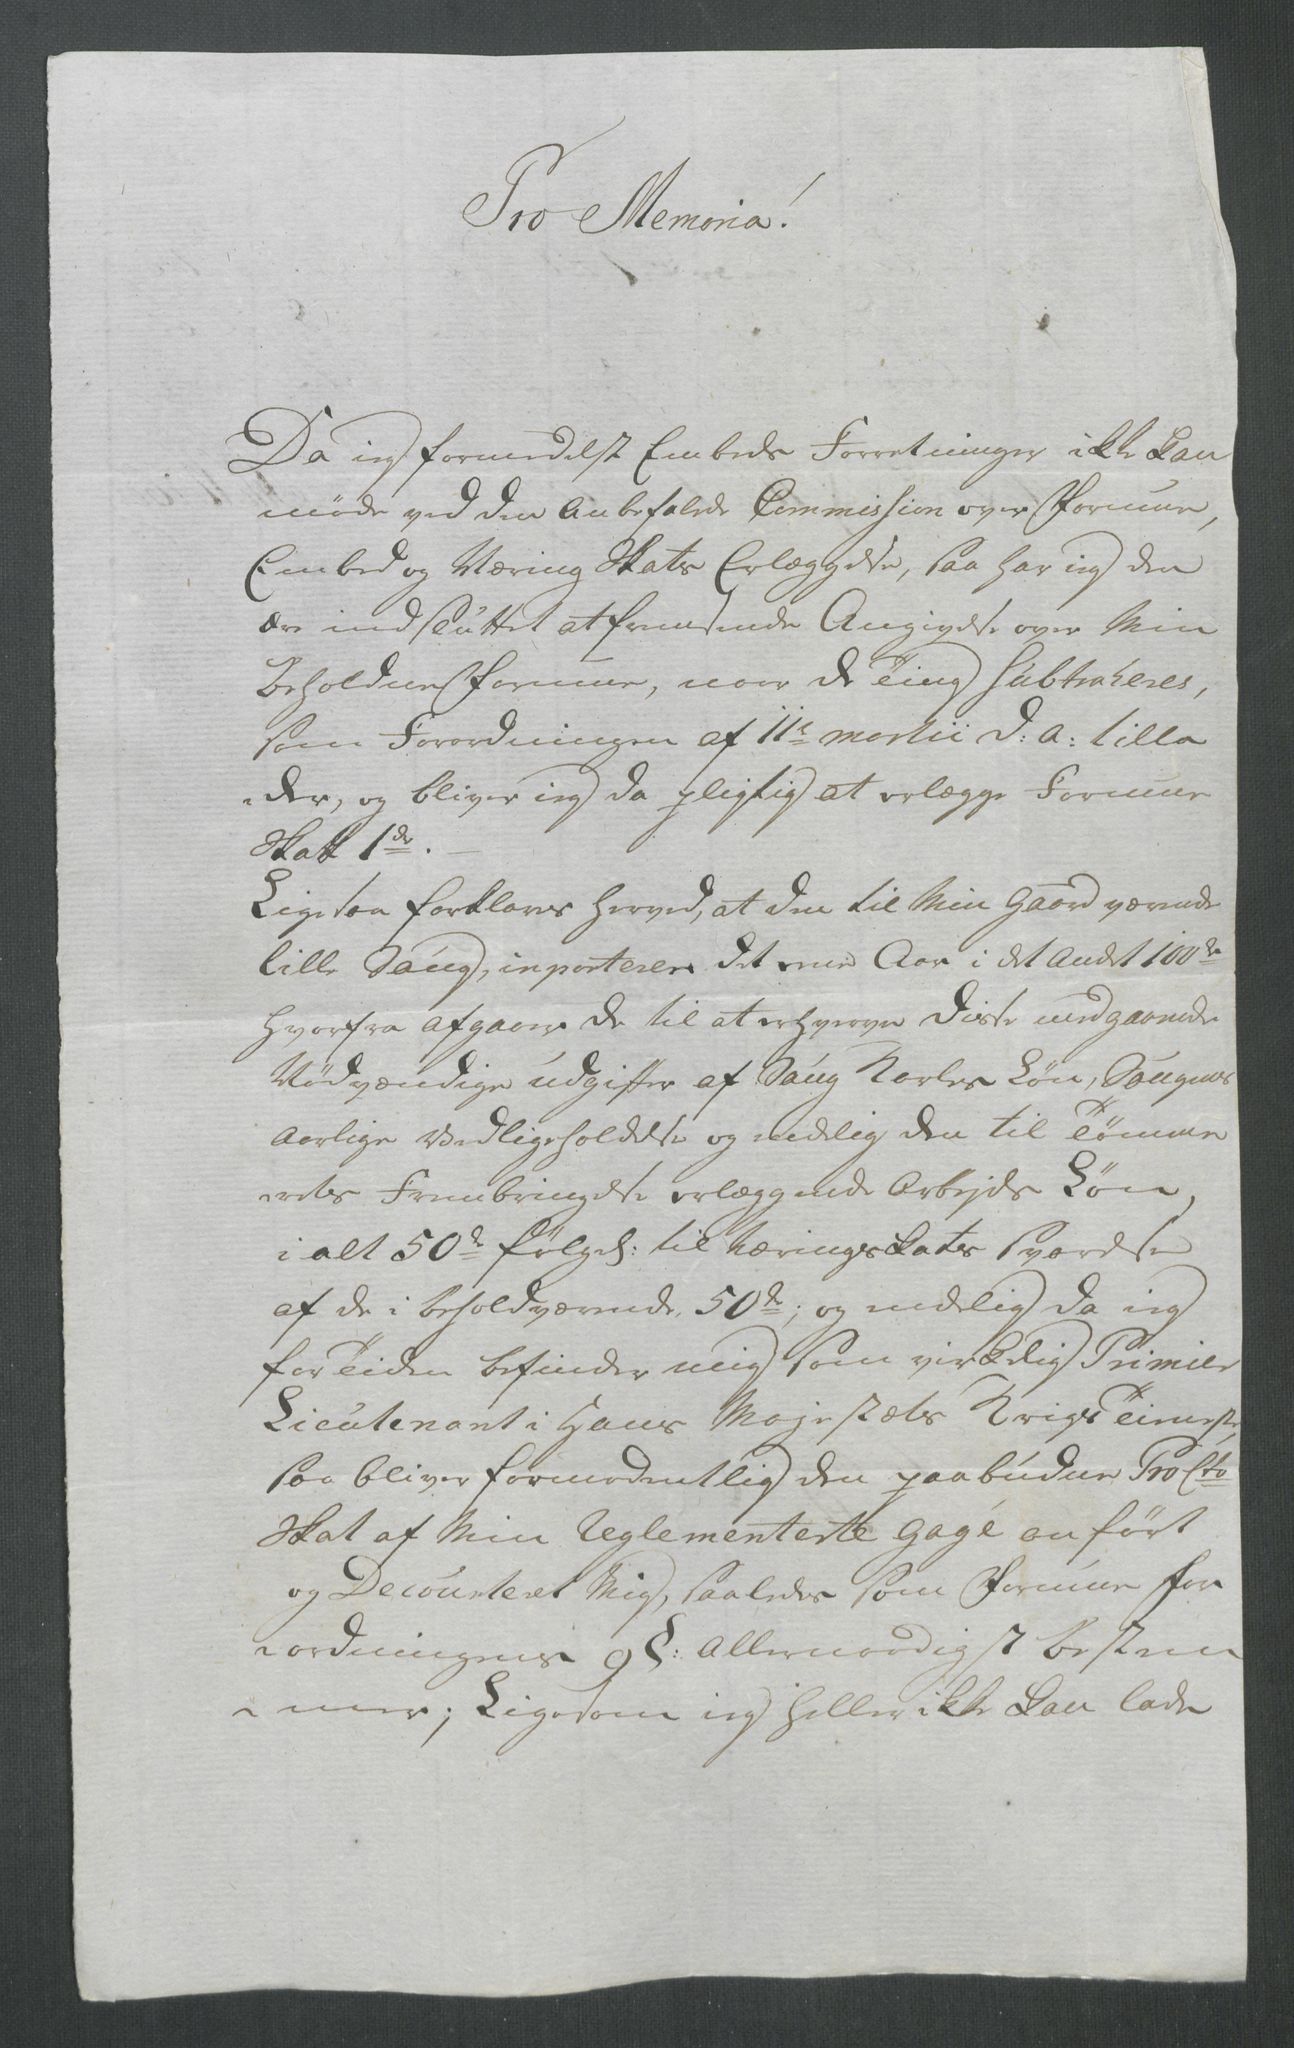 Pro Memoria!
Da ieg formedelst Embeds Forretninger ikke kan
møde ved den anbefalede Commission over Formue,
Embed og Næring Skats Erlæggelse, saa har ieg den
ære indsluttet at fremsende Angivelse over Min
beholdne Formue, naar de Ting Subtraheres,
som Forordningen af 11te martii d: a: tilla
-der, og bliver ieg da pligtig at erlægge Formue
Skatt 1 dr.
Ligesaa forklares herved, at den til Min Gaard værende
lille Saug, inporterer det ene Aar i det andet 100 dr
hvorfra afgaaer de til at erhverve disse medgaaende
Nødvændige udgifter af Saug Karles Løn, Saugens
aarlige Vedligeholdelse og endelig den til Tømme
-rets Frembringelse erlæggende Arbejds Løn,
i alt 50 dr følgel: til næringskats svarelse
af de i behold værende 50 dr; og endelig da ieg
for Tiden befinder mig som virkelig Primier
Lieutenant i Hans Majestæts Krigs Tieneste,
saa bliver formodentlig den paabudne Pro Cto
Skat af Min Reglementerte Gage anført
og Decourteret Mig, saaledes som Formue for
-ordningens 9 §: Allernaadigst bestem
-mer; Ligesom ieg heller ikke kan lade